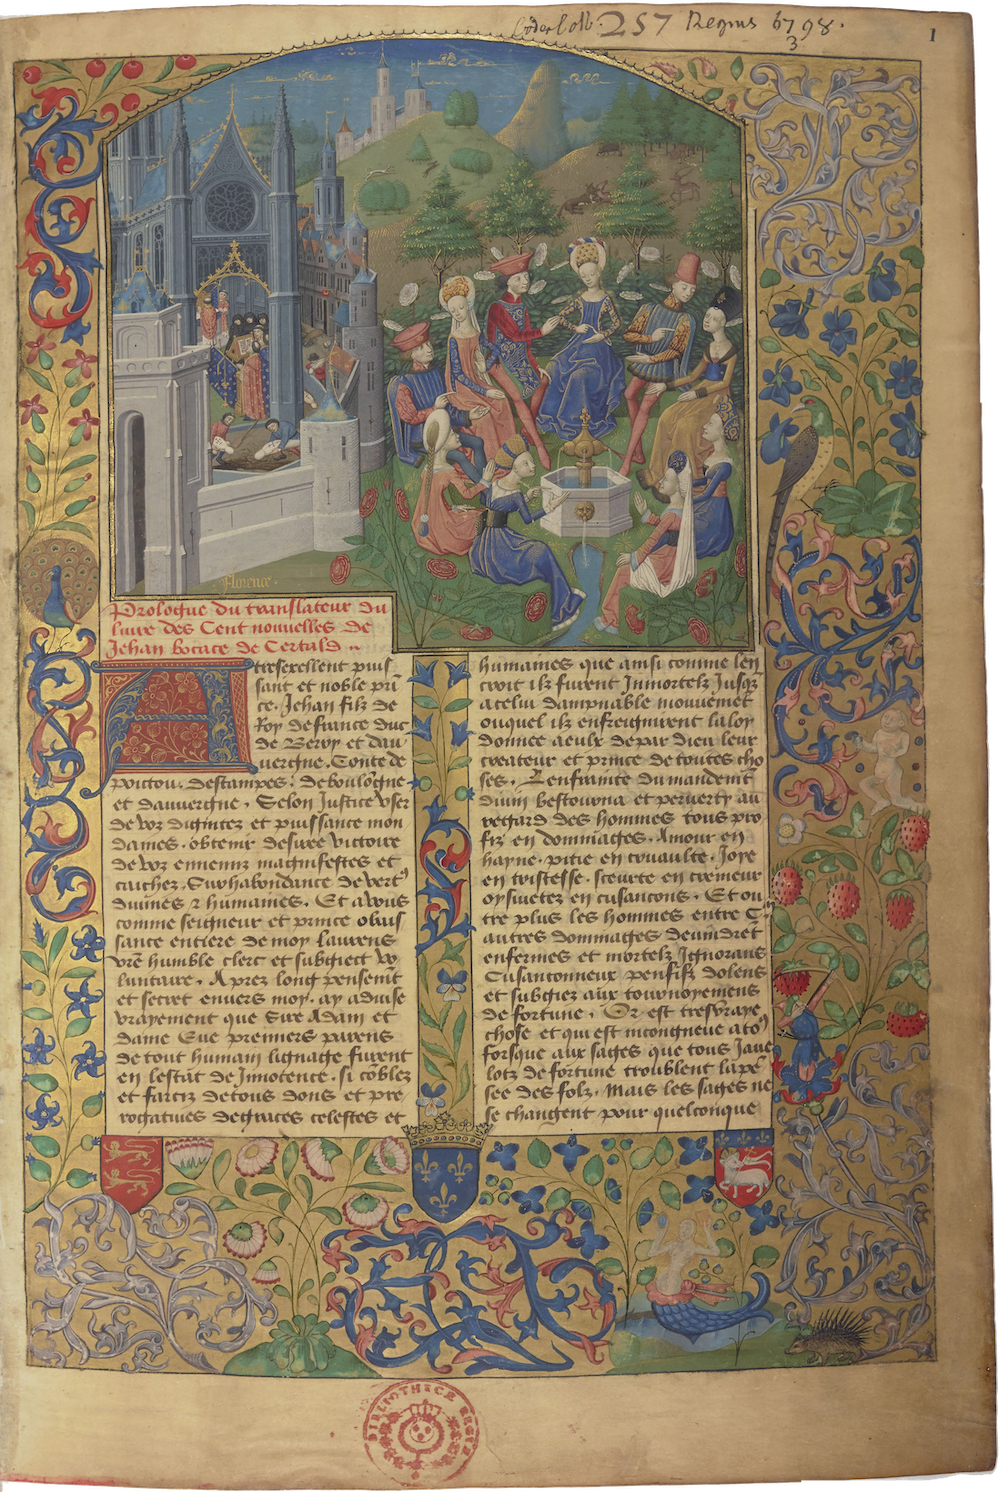 Codex Colb. 257 Regius 6798.
3
1
Florence.
Prologue du translateur du
liure des Cent nouuelles de
Jehan bocace de Certald
A tresexcellent puis
sant et noble pri̅
ce. Jehan filz de
Roy de france duc
de Berry et dau
uergne. Conte de
poictou. destampes. de boulogne
et dauuergne. Selon Justice vser
de voz dignitez et puissance mon
daines. obtenir desiree victoire
de voz ennemiz magnifestes et
cachez. Surhabondance de vertꝰ
diuines ⁊ humaines. Et a vous
comme seigneur et prince obeis
sance entiere de moy laurens
vr̅e humble clerc et subgiect vo
luntaire. Aprez long pensem̅t
et secret enuers moy. ay aduise
vrayement que Sire Adam et
dame Eue premiers parens
de tout humain lignage furent
en lestat de Innocence. si co̅blez
et farciz de tous dons et pre
rogatiues de graces celestes et
humaines que ainsi comme len
croit ilz furent Inmortelz Jusq̅
a celui dampnable mouuemet
ouquel ilz enfreignirent la loy
donnee a eulx de par dieu leur
createur et prince de toutes cho
ses. Lenfrainte du mandem̅t
diuin bestourna et peruerty au
regard des hommes tous pro
fiz en dommages. Amour en
hayne. pitie en cruaulte. Joye
en tristesse. seurte en cremeur
oysiuetez en cusancons. Et ou
tre plus les hommes entre
autres dommages deuindret
enfermes et mortelz Ignorans
Cusanconneux pensifz dolens
et subgiez aux tournoyemens
de fortune. Or est tresvraye
chose et qui est incongneue a toꝰ
forsque aux sages que tous Jaue
lotz de fortune troublent la pe̅
see des folz. Mais les sages ne
se changent pour quelconque
BIBLIOTHECÆ REGIÆ